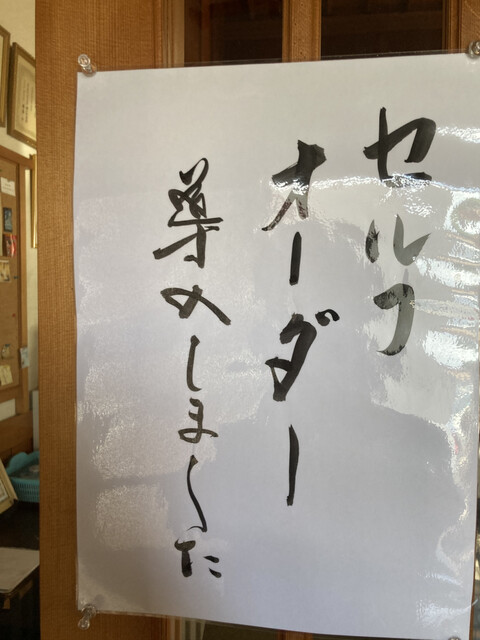 セルフ
オーダー
導入しました